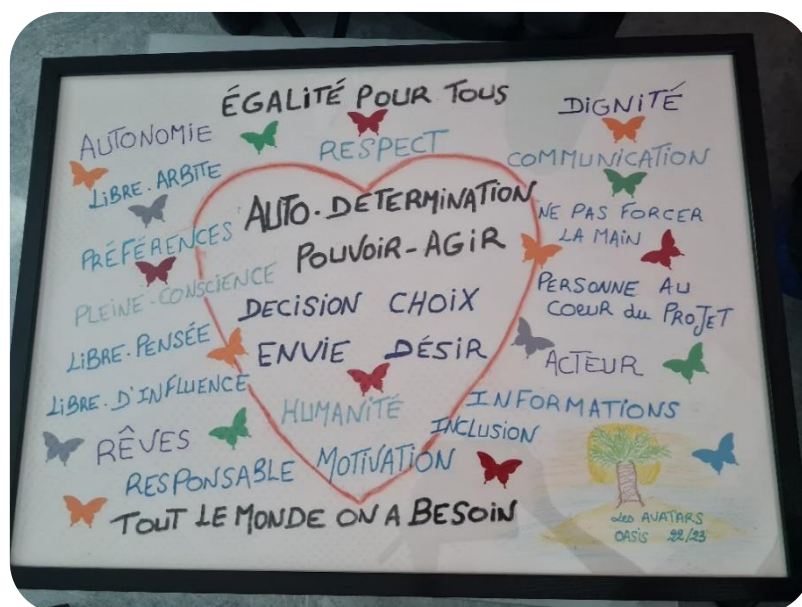 ÉGALITÉ POUR TOUS
DIGNITÉ
AUTONOMIE
RESPECT
COMMUNICATION
LIBRE-ARBITE
AUTO-DETERMINATION
NE PAS FORCER
LA MAIN
PRÉFÉRENCES
POUVOIR-AGIR
PLEINE-CONSCIENCE
DECISION CHOIX
PERSONNE AU
COEUR du PROJET
LIBRE-PENSÉE
ENVIE DÉSIR
ACTEUR
LIBRE-D'INFLUENCE
HUMANITÉ
INFORMATIONS
INCLUSION
RÊVES
RESPONSABLE MOTIVATION
TOUT LE MONDE ON A BESOIN
Les AVATARS
OASIS 22/23